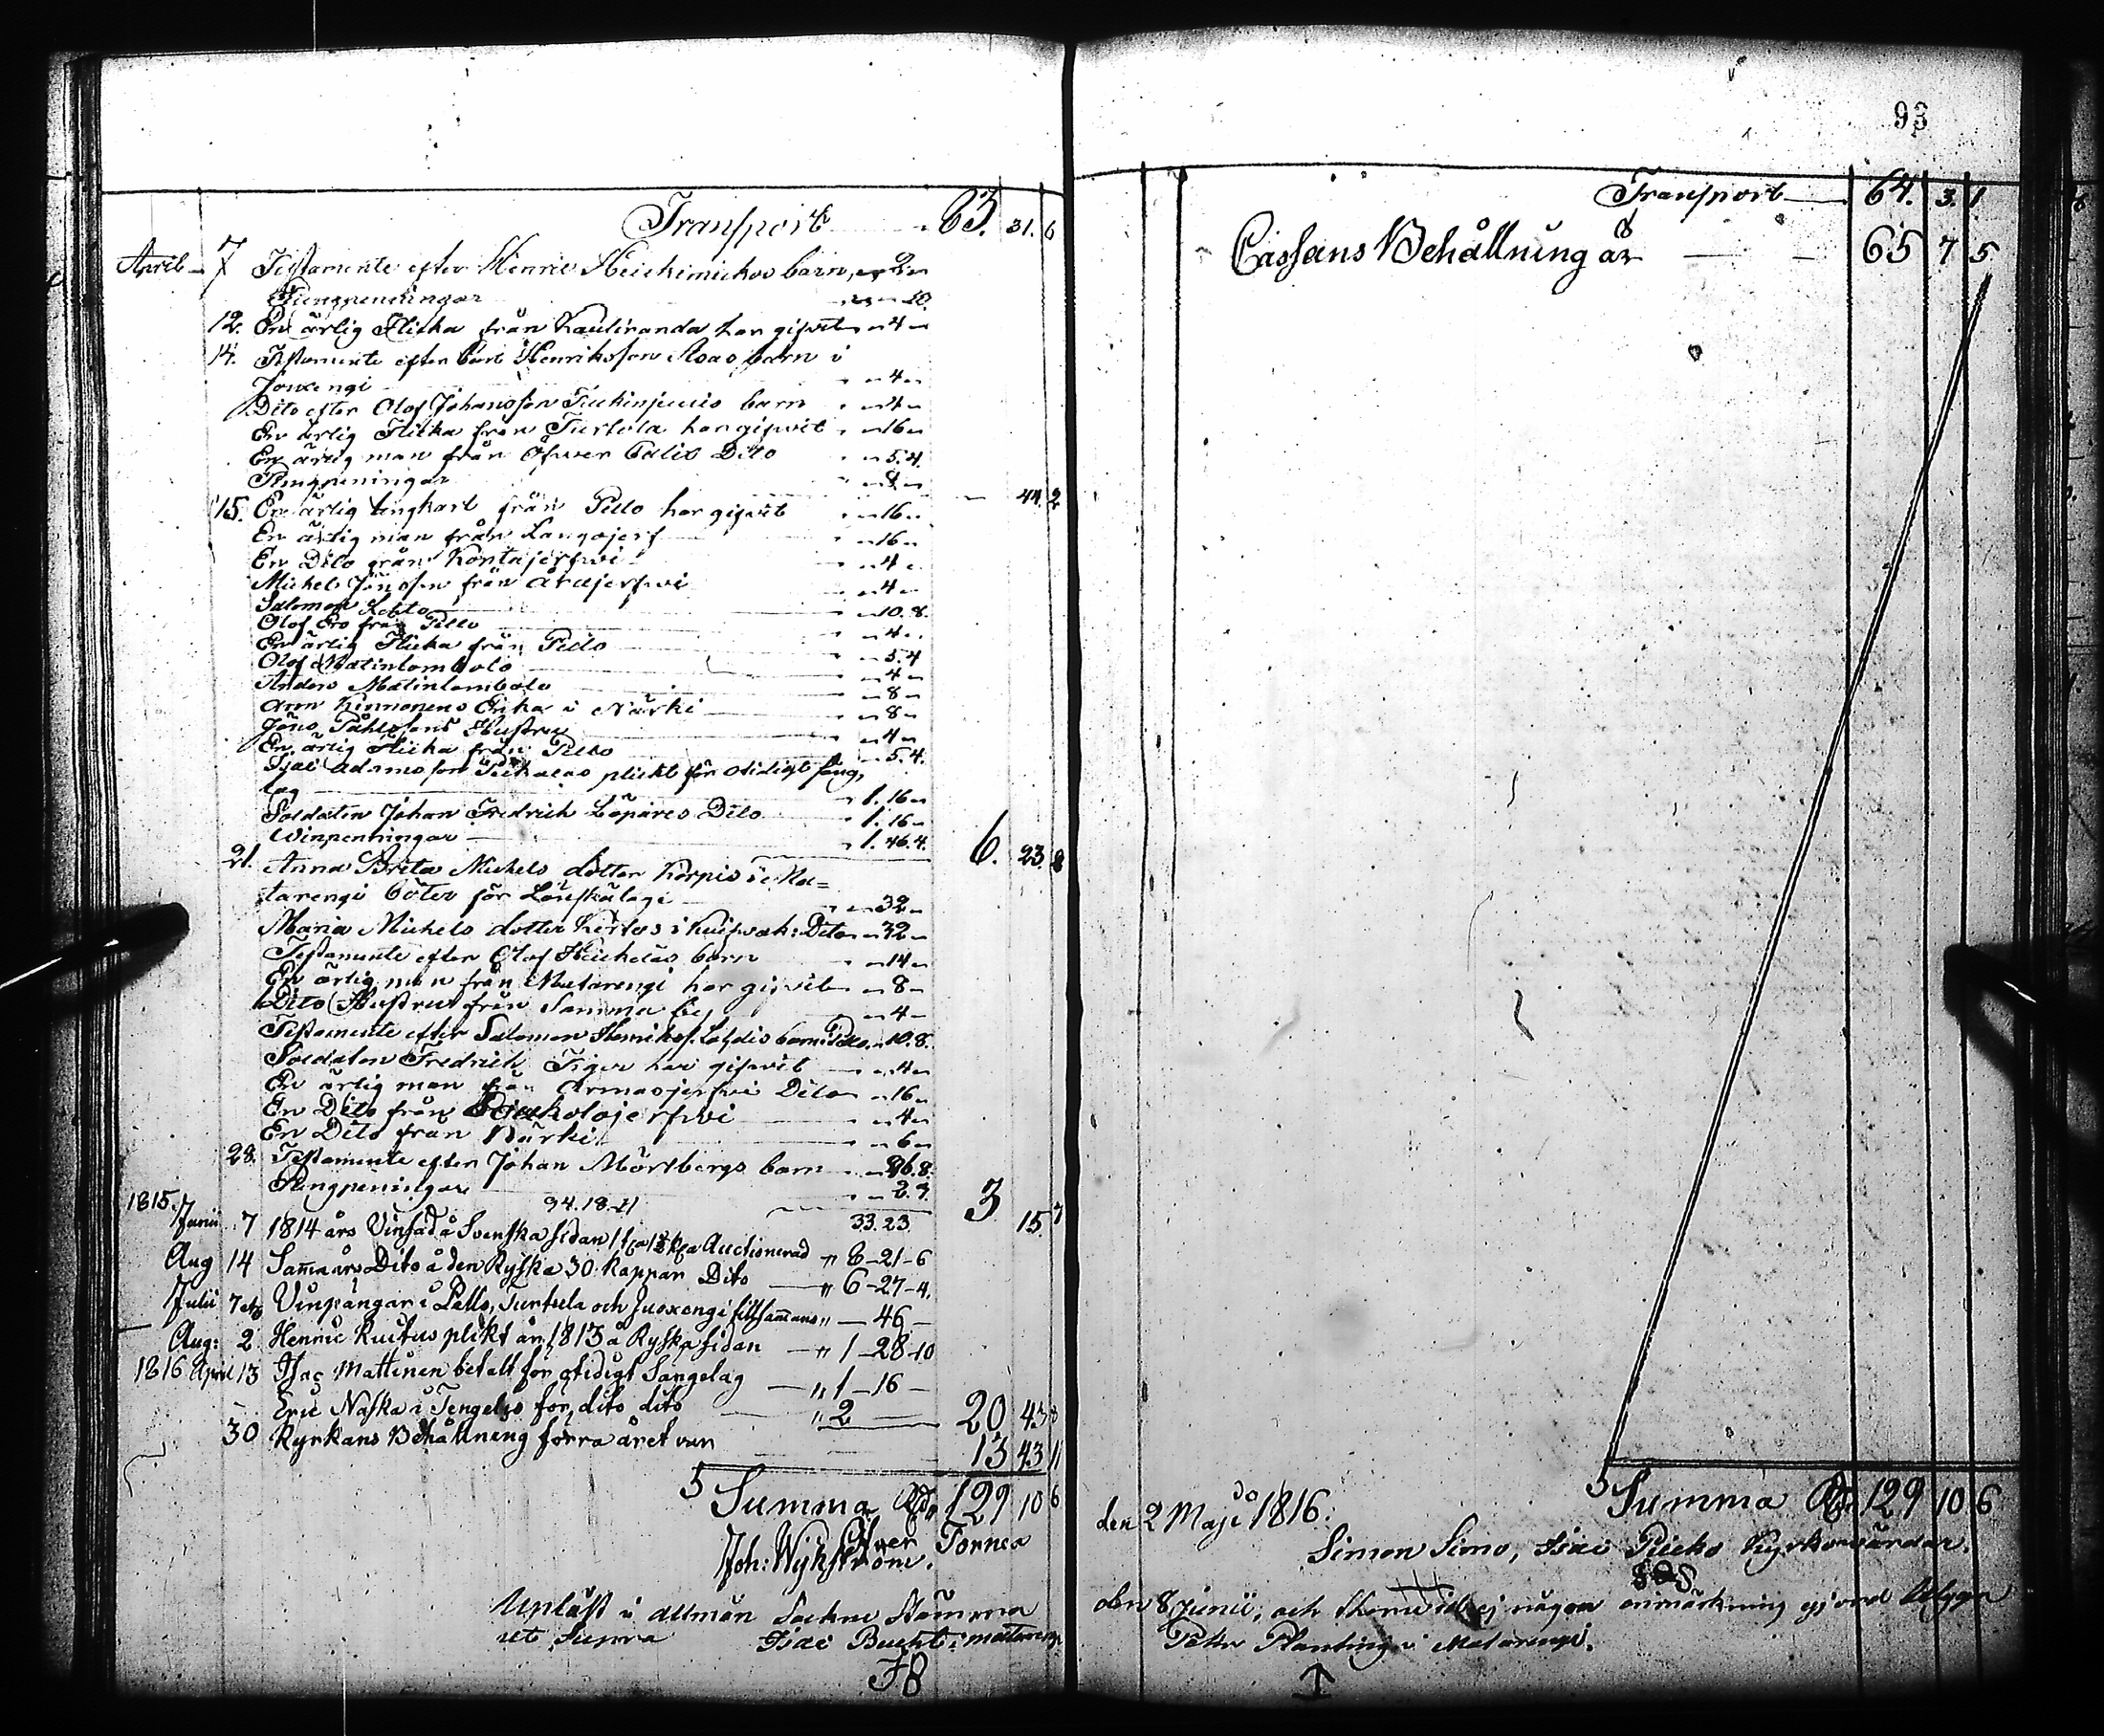 Transport 63. 31. 6
April 7 Testamente efter Henric Heickimickos barn, 2
Pungpenningar 10.
12. En ärlig Flicka från Kauliranda har gifvit 4
14. Testamente efter Carl Henriksson Roas barn i
Jouxengi 4
Dito efter Olof Johansson barn 4
En ärlig Flicka från Turtola har gifvit 16
En ärlig man från Öfwer Dito 5.4.
Pungpeningar 8
44. 2
15. En ärlig ungkarl från Pello har gifvit 16
En ärlig man från Langojerf 16
En Dito från Kontajerfwi 4
Michel Jönsson från Arajerfwi 4
Salomon Lehto 10.8.
Olof Ero från Pello 4
En ärlig Flicka från Pello 5.4
Olof Matinlombolo 4
Anders Matinlombolo 8
Arm Kinnonens Erika i Närki 8
Jöns Påhlssons Hustru 4
En ärlig Flicka från Pello 5.4.
Isac Adamsson plickt för otidigt säng,
lag 1. 16
Soldaten Johan Fredrich Löpares Dito 1. 16
Winpenningar 1. 46.4.
6. 23. 8
21. Anna Brita Michels dotter Korpis i Ma=
tarengi böter för Lönskalage 32
Maria Michels dotter Kertus i Dito 32
Testamente efter Olof barn 14
En ärlig man från Matarengi har gifvit 8
Dito Hustru från Samma by 4
Testamente efter Salomon Henrikss. barn i Pello 10.8.
Soldaten Fredrich Tiger har gifvit 4
En ärlig man från Armasjerfwi Dito 16
En Dito från jerfwi 4
En Dito från Närki 6
28. Testamente efter Johan Mörtbergs barn 26.8.
Pungpeningar 2.7.
94.18.11
3 15. 7
1815. 33.23
Junii 7 1814 års Vinsäd å Svenska sidan Auctionerad " 8-21-6
Aug 14 Samma års Dito å den Ryska 30 kappar Dito " 6-27-4.
Julii 7 Vinpängar i Pello, Turtula och Juoxengi tillsammans " 46
Aug: 2 Henric plikt år 1813 å Ryska sidan " 1-28-10
1816 April 13 Isac Mattinen betalt för otidigt Sängelag " 1-16
Eric Naska i Tengelis för dito dito " 2 20 43 8
30 Kyrkans Behållning förra året var 13 43 11
Summa Rdr 129 10 6
Öfver Tornea
Joh: Wykström.
Upläst i allmän Sockne Stämma
ut Supra Isac Bucht i Matarengi
93
Transport 64. 3. 1
Cassans Behållning är 65 7 5
Summa Rdr 129 10 6
den 2 Maji 1816.
Simon Simo, Isac Piecko Kyrkowärdar.
den 8 Junii, och ej någon anmärkning gjord
Petter Planting i Matarengi.